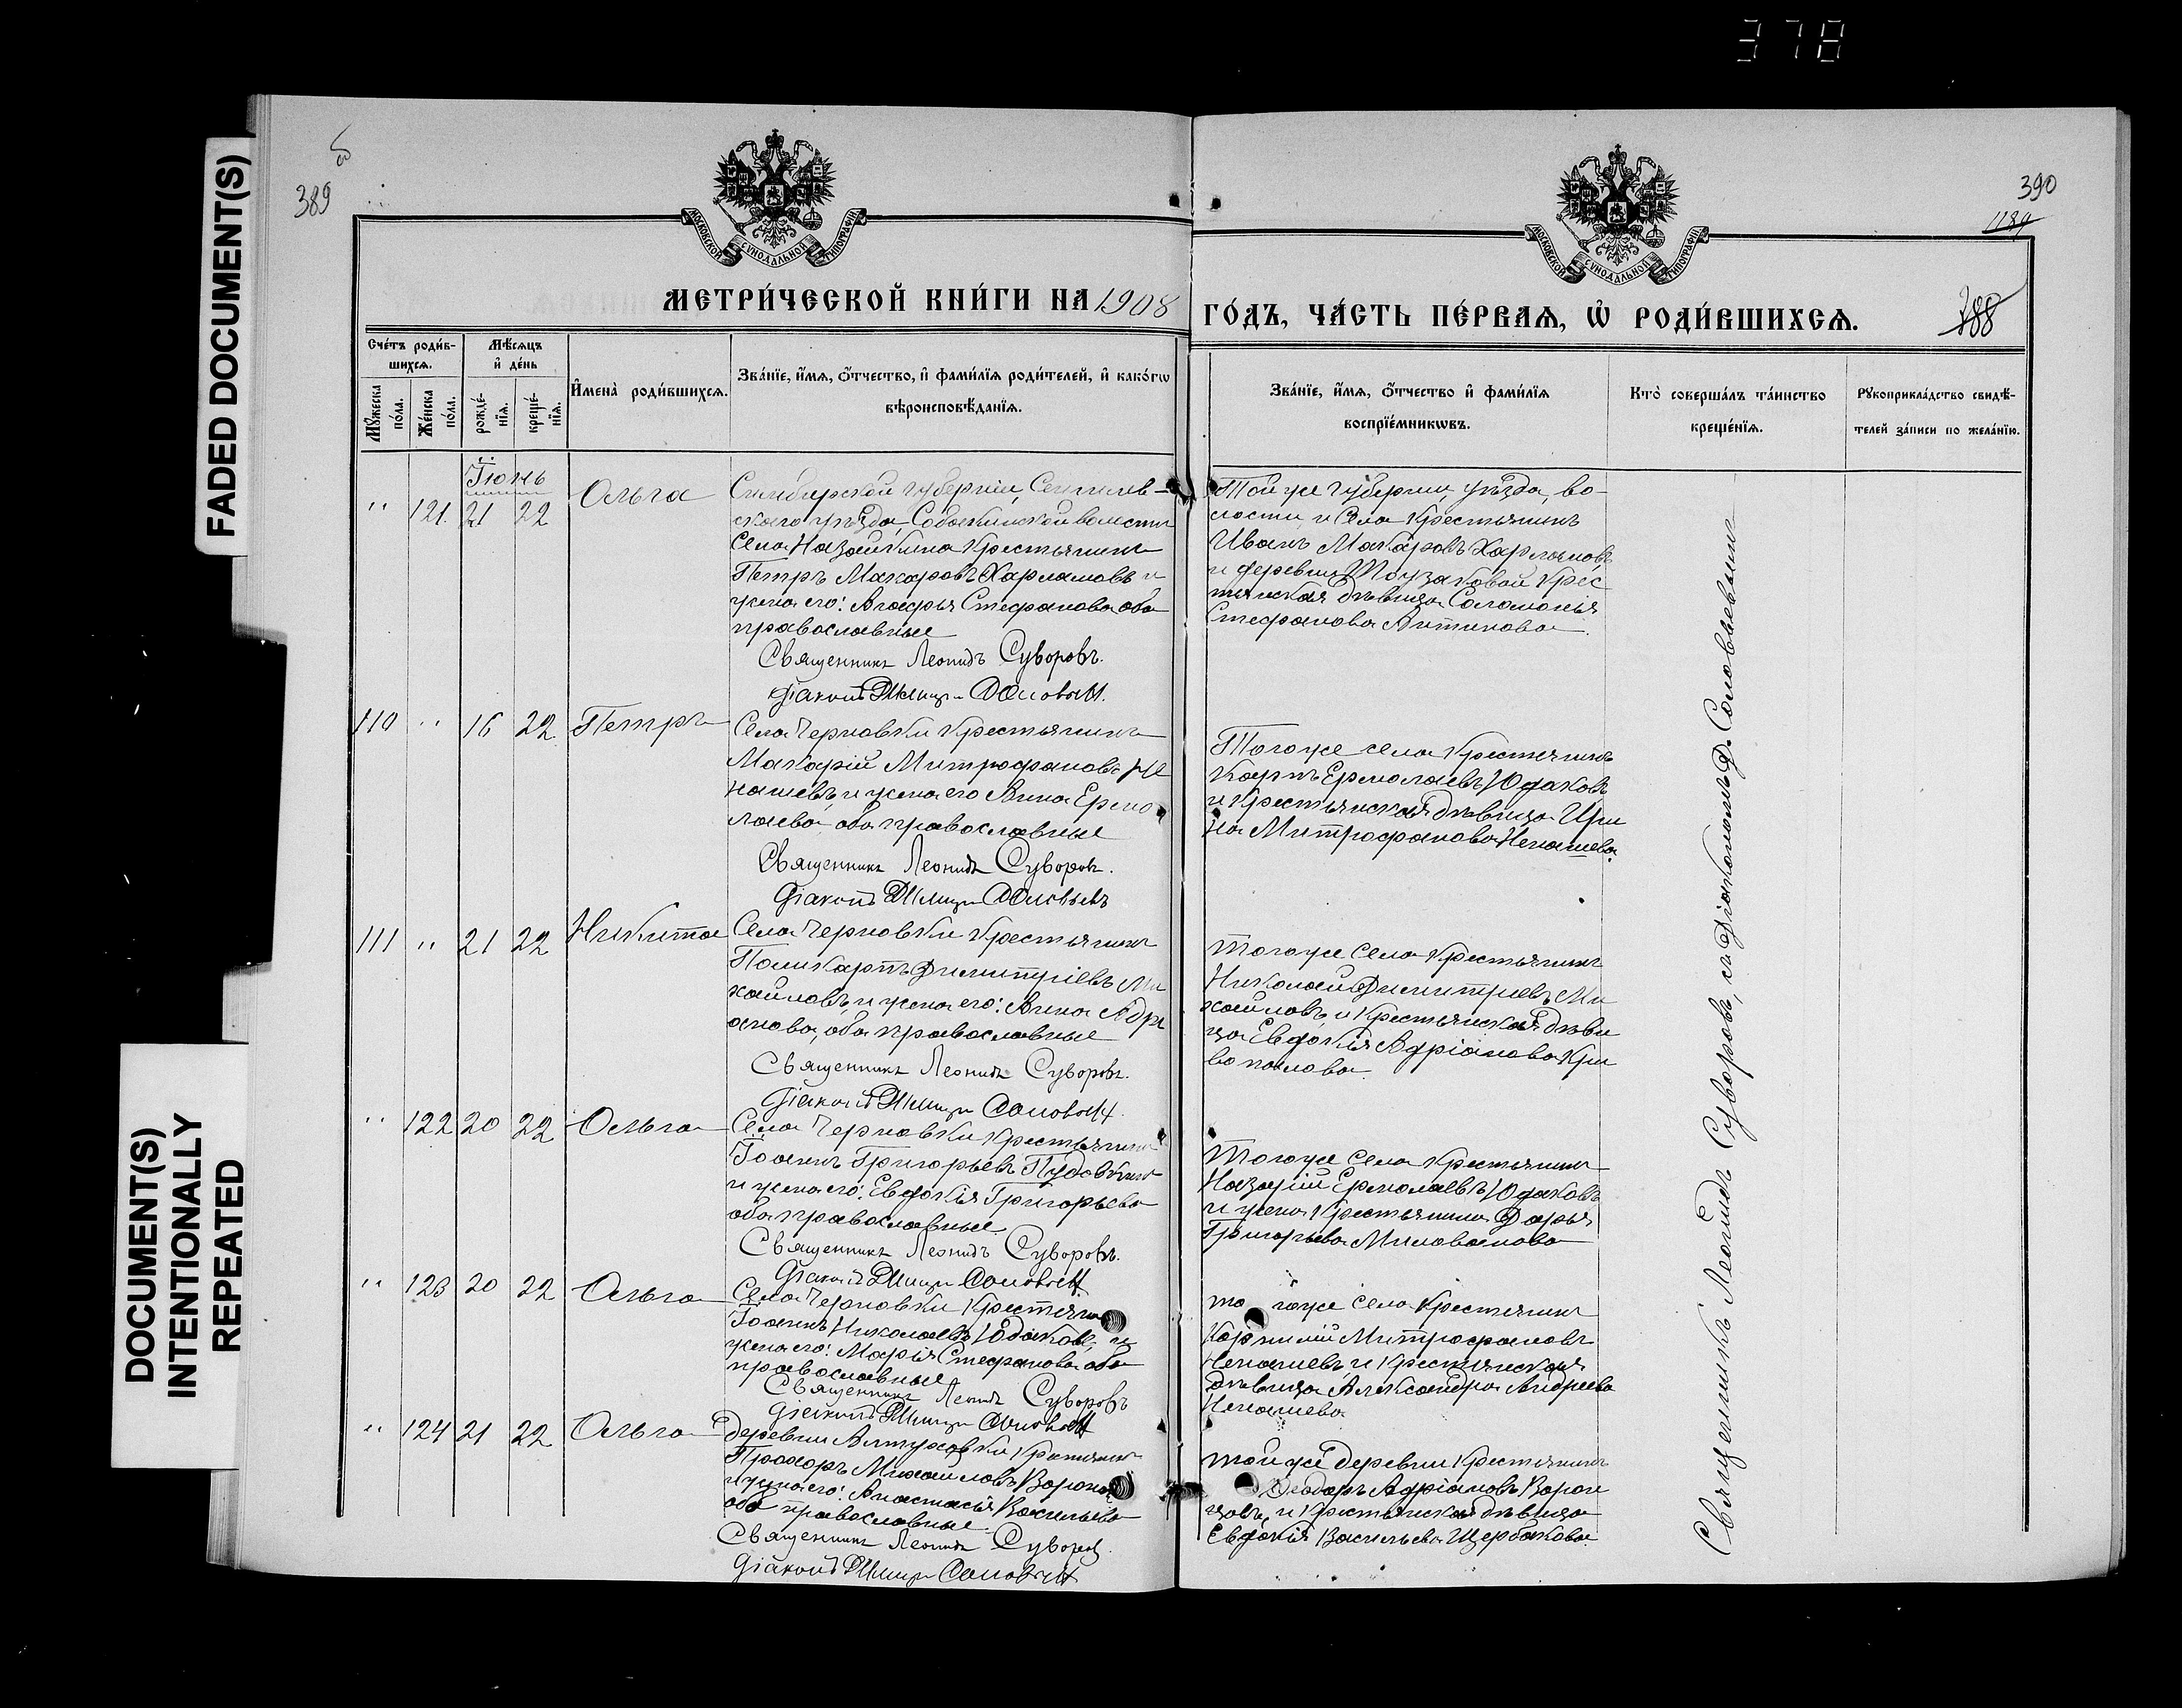 378
FADED DOCUMENT(S)
DOCUMENT(S)
INTENTIONALLY
REPEATED
389
390
1189
388
МОСКОВСКОЙ СѴНОДАЛЬНОЙ ТИПОГРАФІИ
МОСКОВСКОЙ СѴНОДАЛЬНОЙ ТИПОГРАФІИ
МЕТРИ́ЧЕСКОЙ КНИ́ГИ НА 1908
ГО́ДЪ, ЧА́СТЬ ПЕ́РВАѦ, Ѡ҆ РОДИ́ВШИХСѦ.
Сче́тъ роди́в-
шихсѧ.
Мꙋ́жеска по́ла.
Же́нска по́ла.
Мѣ́сѧцъ
и҆ де́нь
рожде́-
нїѧ.
креще́-
нїѧ.
И҆мена̀ роди́вшихсѧ.
Зва́нїе, и҆́мѧ, ѻ҆́тчество, и҆ фами́лїѧ роди́телей, и҆ како́гѡ
вѣроисповѣ́данїѧ.
Зва́нїе, и҆́мѧ, ѻ҆́тчество и҆ фами́лїѧ
воспрїе́мникѡвъ.
Кто̀ соверша́лъ та́инство
креще́нїѧ.
Рꙋкоприкла́дство свидѣ́-
телей за́писи по жела́нїю.
Іюнь
" 121. 21 22 Ольга
Симбирской губерніи, Сенгилев-
скаго уѣзда, Собакинской волости
села Назайкина крестьянинъ
Петръ Макаровъ Харламовъ и
жена его: Агафья Стефанова оба
православные
Священникъ Леонидъ Суворовъ.
Діаконъ Димитрій Соловьевъ.
Той же губерніи, уѣзда, во-
лости и села крестьянинъ
Иванъ Макаровъ Харламовъ
и деревни крес-
тьянская дѣвица Соломонія
Стефанова Антипова.
110 " 16 22 Петръ
Села Черновки крестьянинъ
Макарій Митрофановъ Не
нашевъ, и жена его Анна Ермо
лаева оба православные
Священникъ Леонидъ Суворовъ.
Діаконъ Димитрій Соловьевъ
Тогоже села крестьянинъ
Карпъ Ермолаевъ Юдаковъ
и крестьянская дѣвица Ири
на Митрофанова Ненашева.
111 " 21 22 Никита
Села Черновки крестьянинъ
Поликарпъ Димитріевъ Ми
хайловъ, и жена его: Анна Адрі
анова, оба православные
Священникъ Леонидъ Суворовъ.
Діаконъ Димитрій Соловьевъ.
Тогоже села крестьянинъ
Николай Димитріевъ Ми
хайловъ, и крестьянская дѣви
ца Евдокія Адріанова Кри
" 122 20 22 Ольга
Села Черновки крестьянинъ
Іоаннъ Григорьевъ Пудовкинъ
и жена его: Евдокія Григорьева
оба православные
Священникъ Леонидъ Суворовъ.
Діаконъ Димитрій Соловьевъ
Тогоже села крестьянинъ
Назарій Ермолаевъ Юдаковъ
и жена крестьянина Дарья
Григорьева Милованова
" 123 20 22 Ольга
Села Черновки крестьянинъ
Іоаннъ Николаевъ Юдаковъ, и
жена его: Марія Стефанова оба
православные
Священникъ Леонидъ Суворовъ
Діаконъ Димитрій Соловьевъ
тогоже села крестьянинъ
Корнилій Митрофановъ
Ненашевъ, и крестьянская
дѣвица Александра Андреева
Ненашева
" 124 21 22 Ольга
деревни Алтуховки крестьянинъ
Прохоръ Михайловъ
и жена его: Анастасія Васильева
оба православные.
Священникъ Леонидъ Суворовъ.
Діаконъ Димитрій Соловьевъ
той же деревни крестьянинъ
Ѳеодоръ Адріановъ Ворон
цовъ, и крестьянская дѣвица
Евдокія Васильева Щербакова.
Священникъ Леонидъ Суворовъ, съ Діакономъ Д. Соловьевымъ